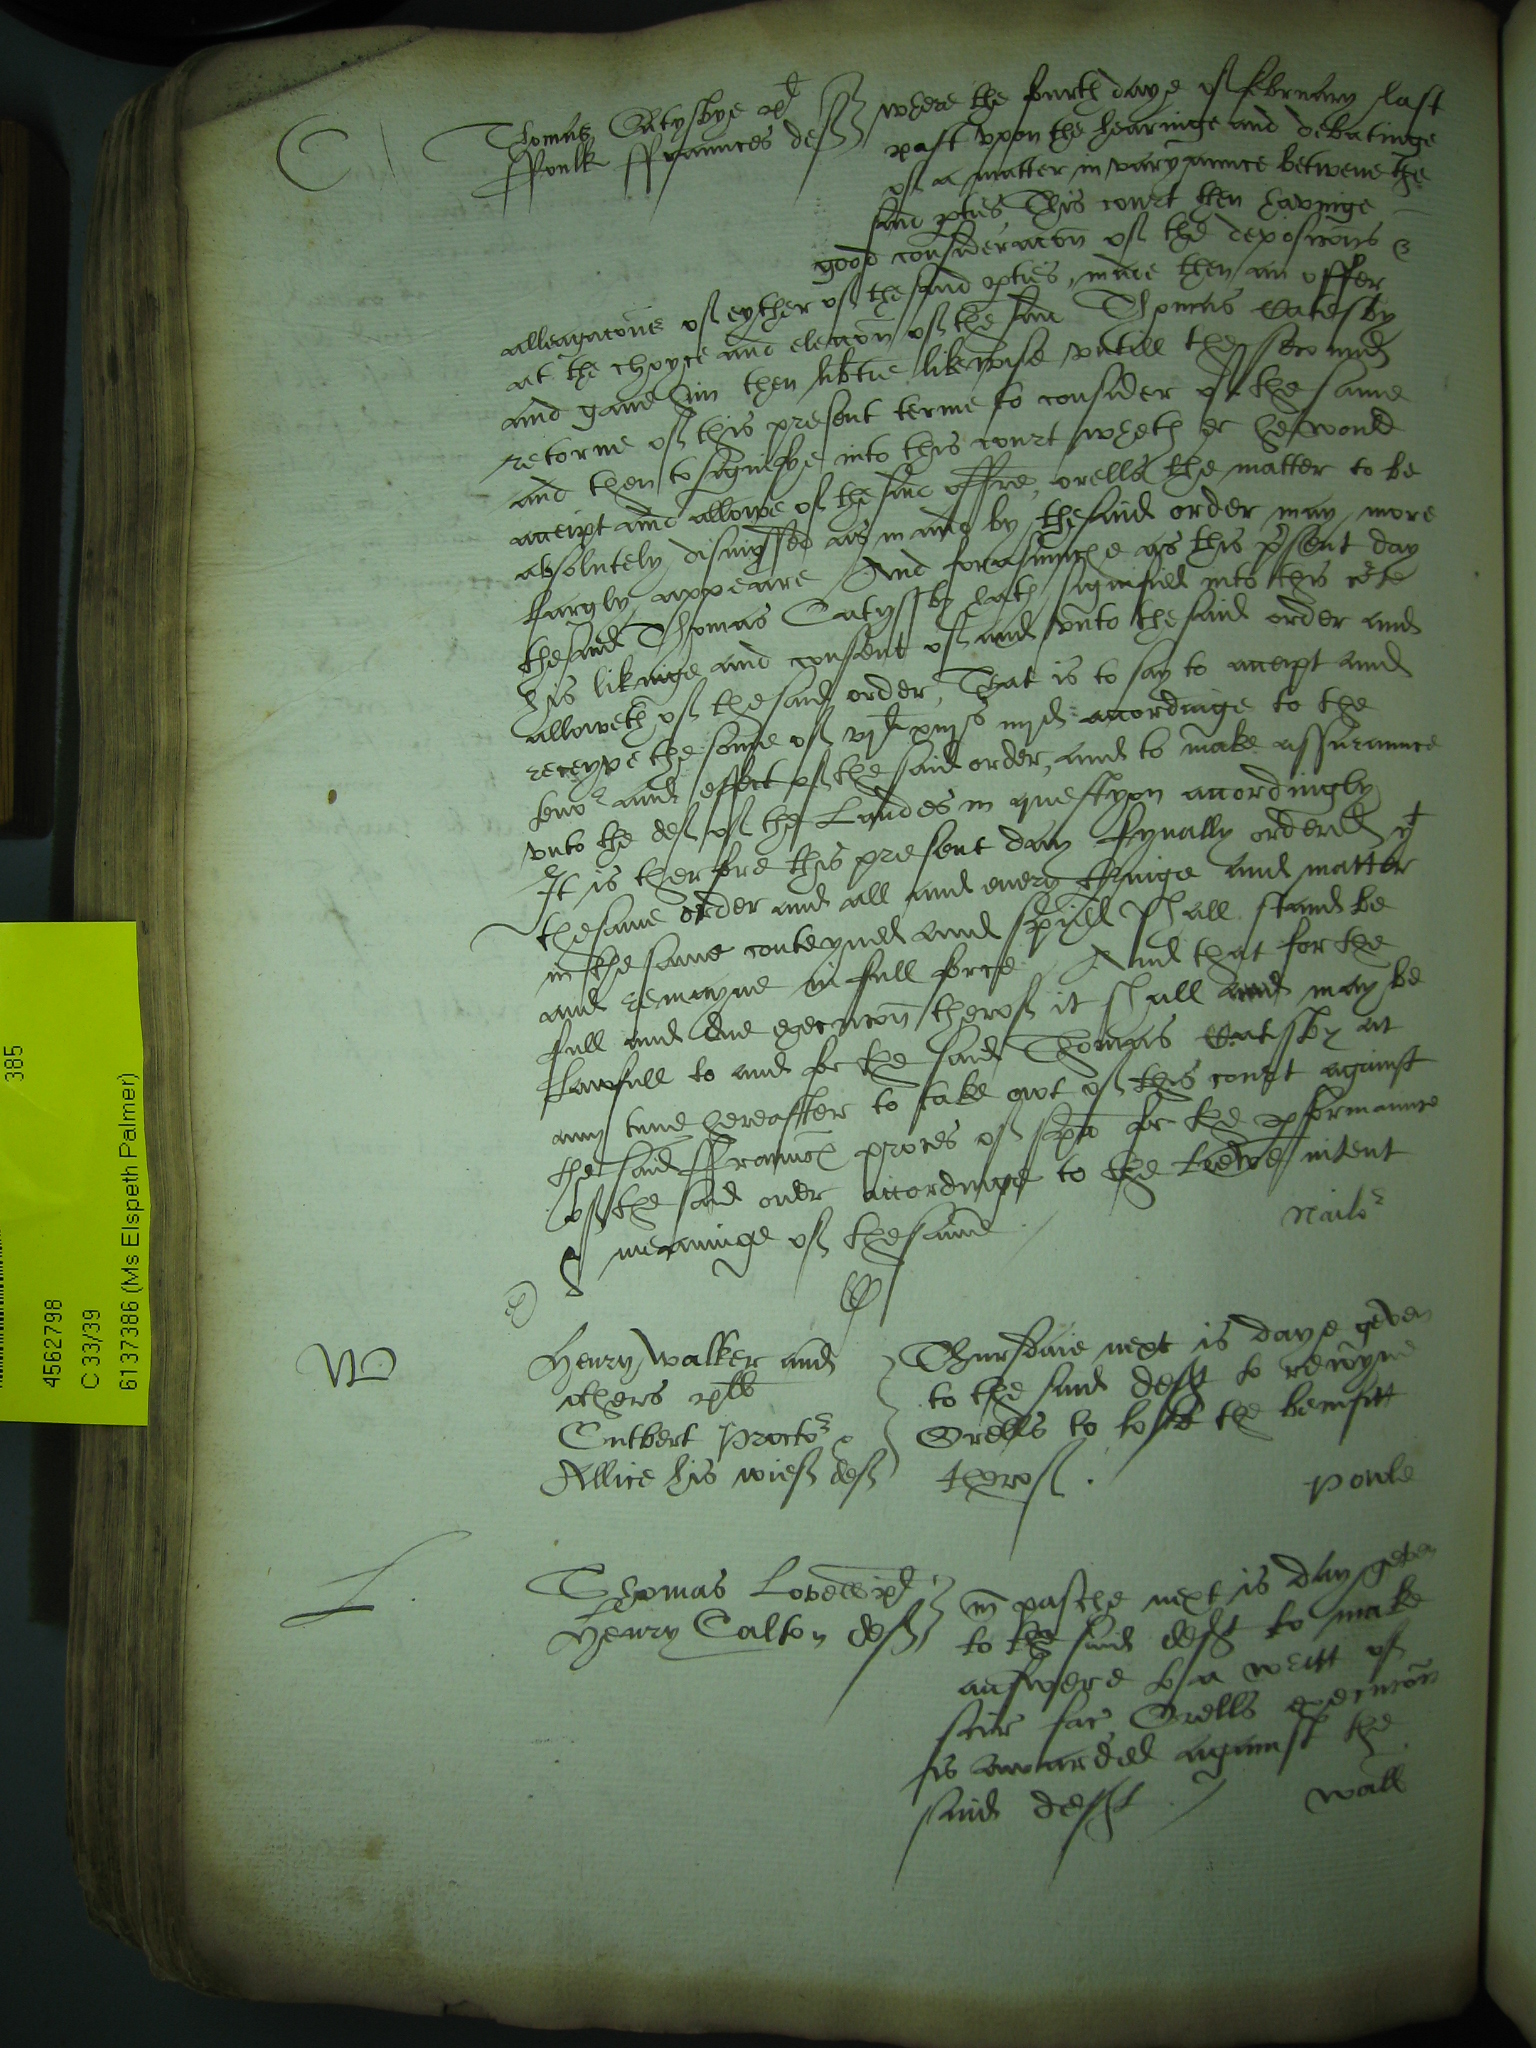 C
Thomas Catysbye pl
ffoulk ffraunces def
Where the fourth daye of february last
past vpon the hearinge and debatinge
of a matter in varyaunce betwene the
said pties This court then havinge
good consideracon of the deposicons &
alleagacons of eyther of the said pties, made then an offer
at the choyce and eleccon of the said Thomas Catesby
and gaue him then libtie likewise vntill the second
retorne of this present terme to consider of the same
and then to signifye into this court whether he would
accept and allowe of the said offre, orells the matter to be
absolutely dismyssed as in and by the said order may more
largly appeare And forasmuche as this psent day
the said Thomas Catyssby hath signified into this cte
his likinge and consent of and vnto the said order and
alloweth of the said order, That is to say to accept and
receyve the some of accordinge to the
teno and effect of the said order, and to make assuraunce
vnto the def of the Landes in questyon accordingly
It is therfore this present day fynally ordered yt
the same order and all and euery thinge and matter
in the same conteyned and spified shall stand be
and remayne in full force And that for the
full and due execucon therof it shall and may be
lawfull to and for the said Thomas Catessby at
any tyme hereaffter to take owt of this court against
the said ffraunc proces of spna for the pformaunce
of the said order accordinge to the trewe intent
& meaninge of the same
Nailo
W
Henry Walker and
others pltb
Cutbert Procto &
Allice his wief def
Thursdaie next is daye geven
to the said deft to reioyne
Orells to lose the benifitt
therof .
Powle
L.
Thomas Lovell pl
Henry Calton def
m pasche next is day geven
to the said deft to make
answere to a writt of
scir fac Orells execucon
is awarded against the
said deft .
Wall
385
4562798
C 33/39
6137386 (Ms Elspeth Palmer)